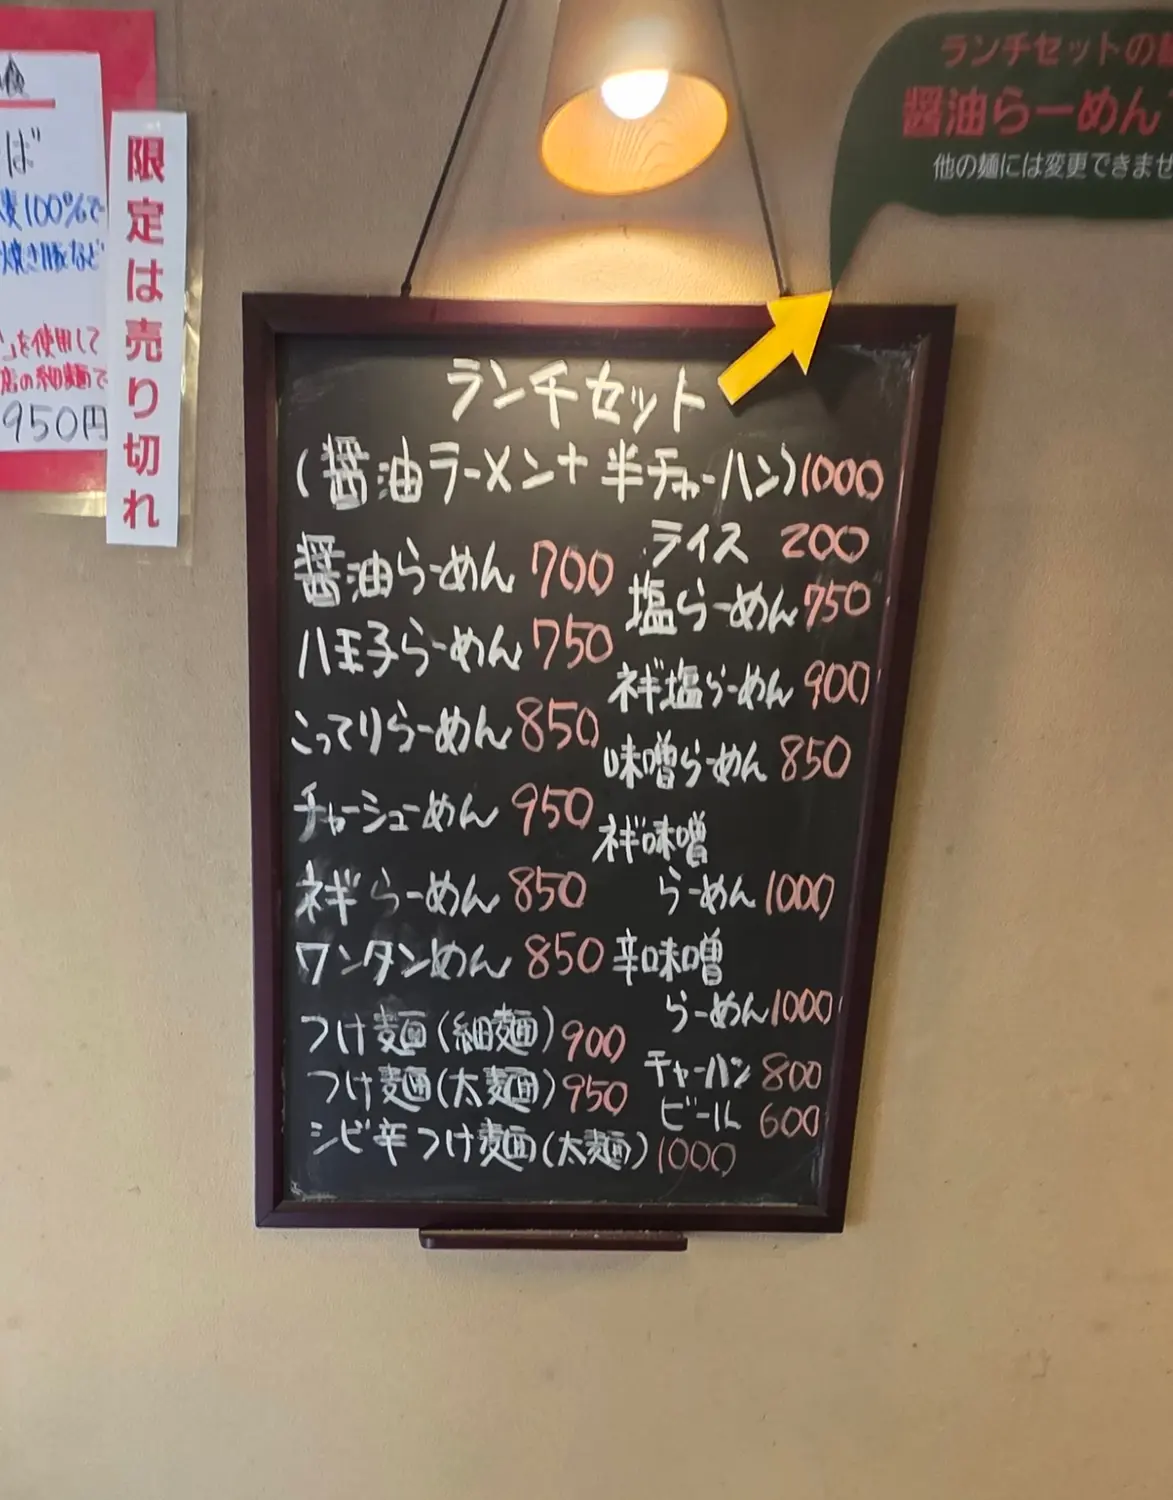 ば
麦100%で
焼き豚など
」を使用して
店の細麺で
950円
限定は売り切れ
ランチセットの
醤油らーめん
他の麺には変更できませ
ランチセット
(醤油ラーメン+半チャーハン)1000
醤油らーめん 700
八王子らーめん 750
こってりらーめん 850
チャーシューめん 950
ネギらーめん 850
ワンタンめん 850
つけ麺(細麺)900
つけ麺(太麺)950
シビ辛つけ麺(太麺)1000
ライス 200
塩らーめん 750
ネギ塩らーめん 900
味噌らーめん 850
ネギ味噌
らーめん 1000
辛味噌
らーめん 1000
チャーハン 800
ビール 600